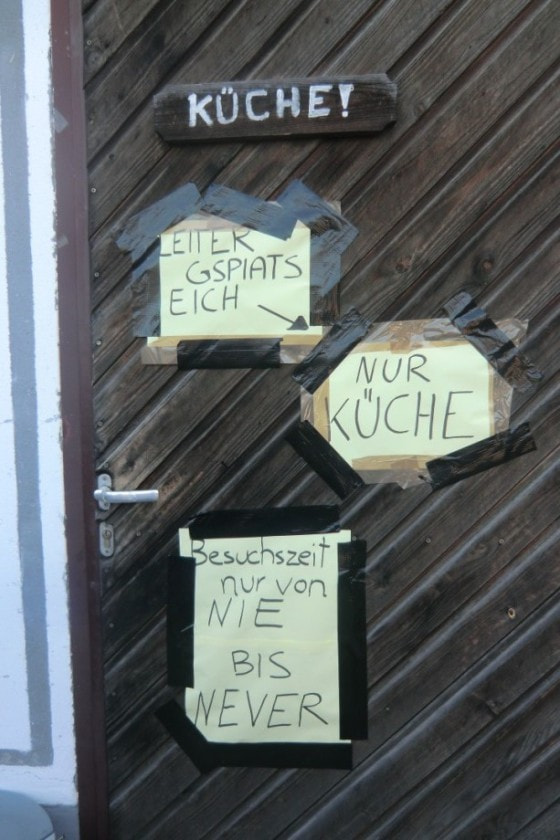 KÜCHE!
LEITER
GSPIATS
EICH
NUR
KÜCHE
Besuchszeit
nur von
NIE
BIS
NEVER